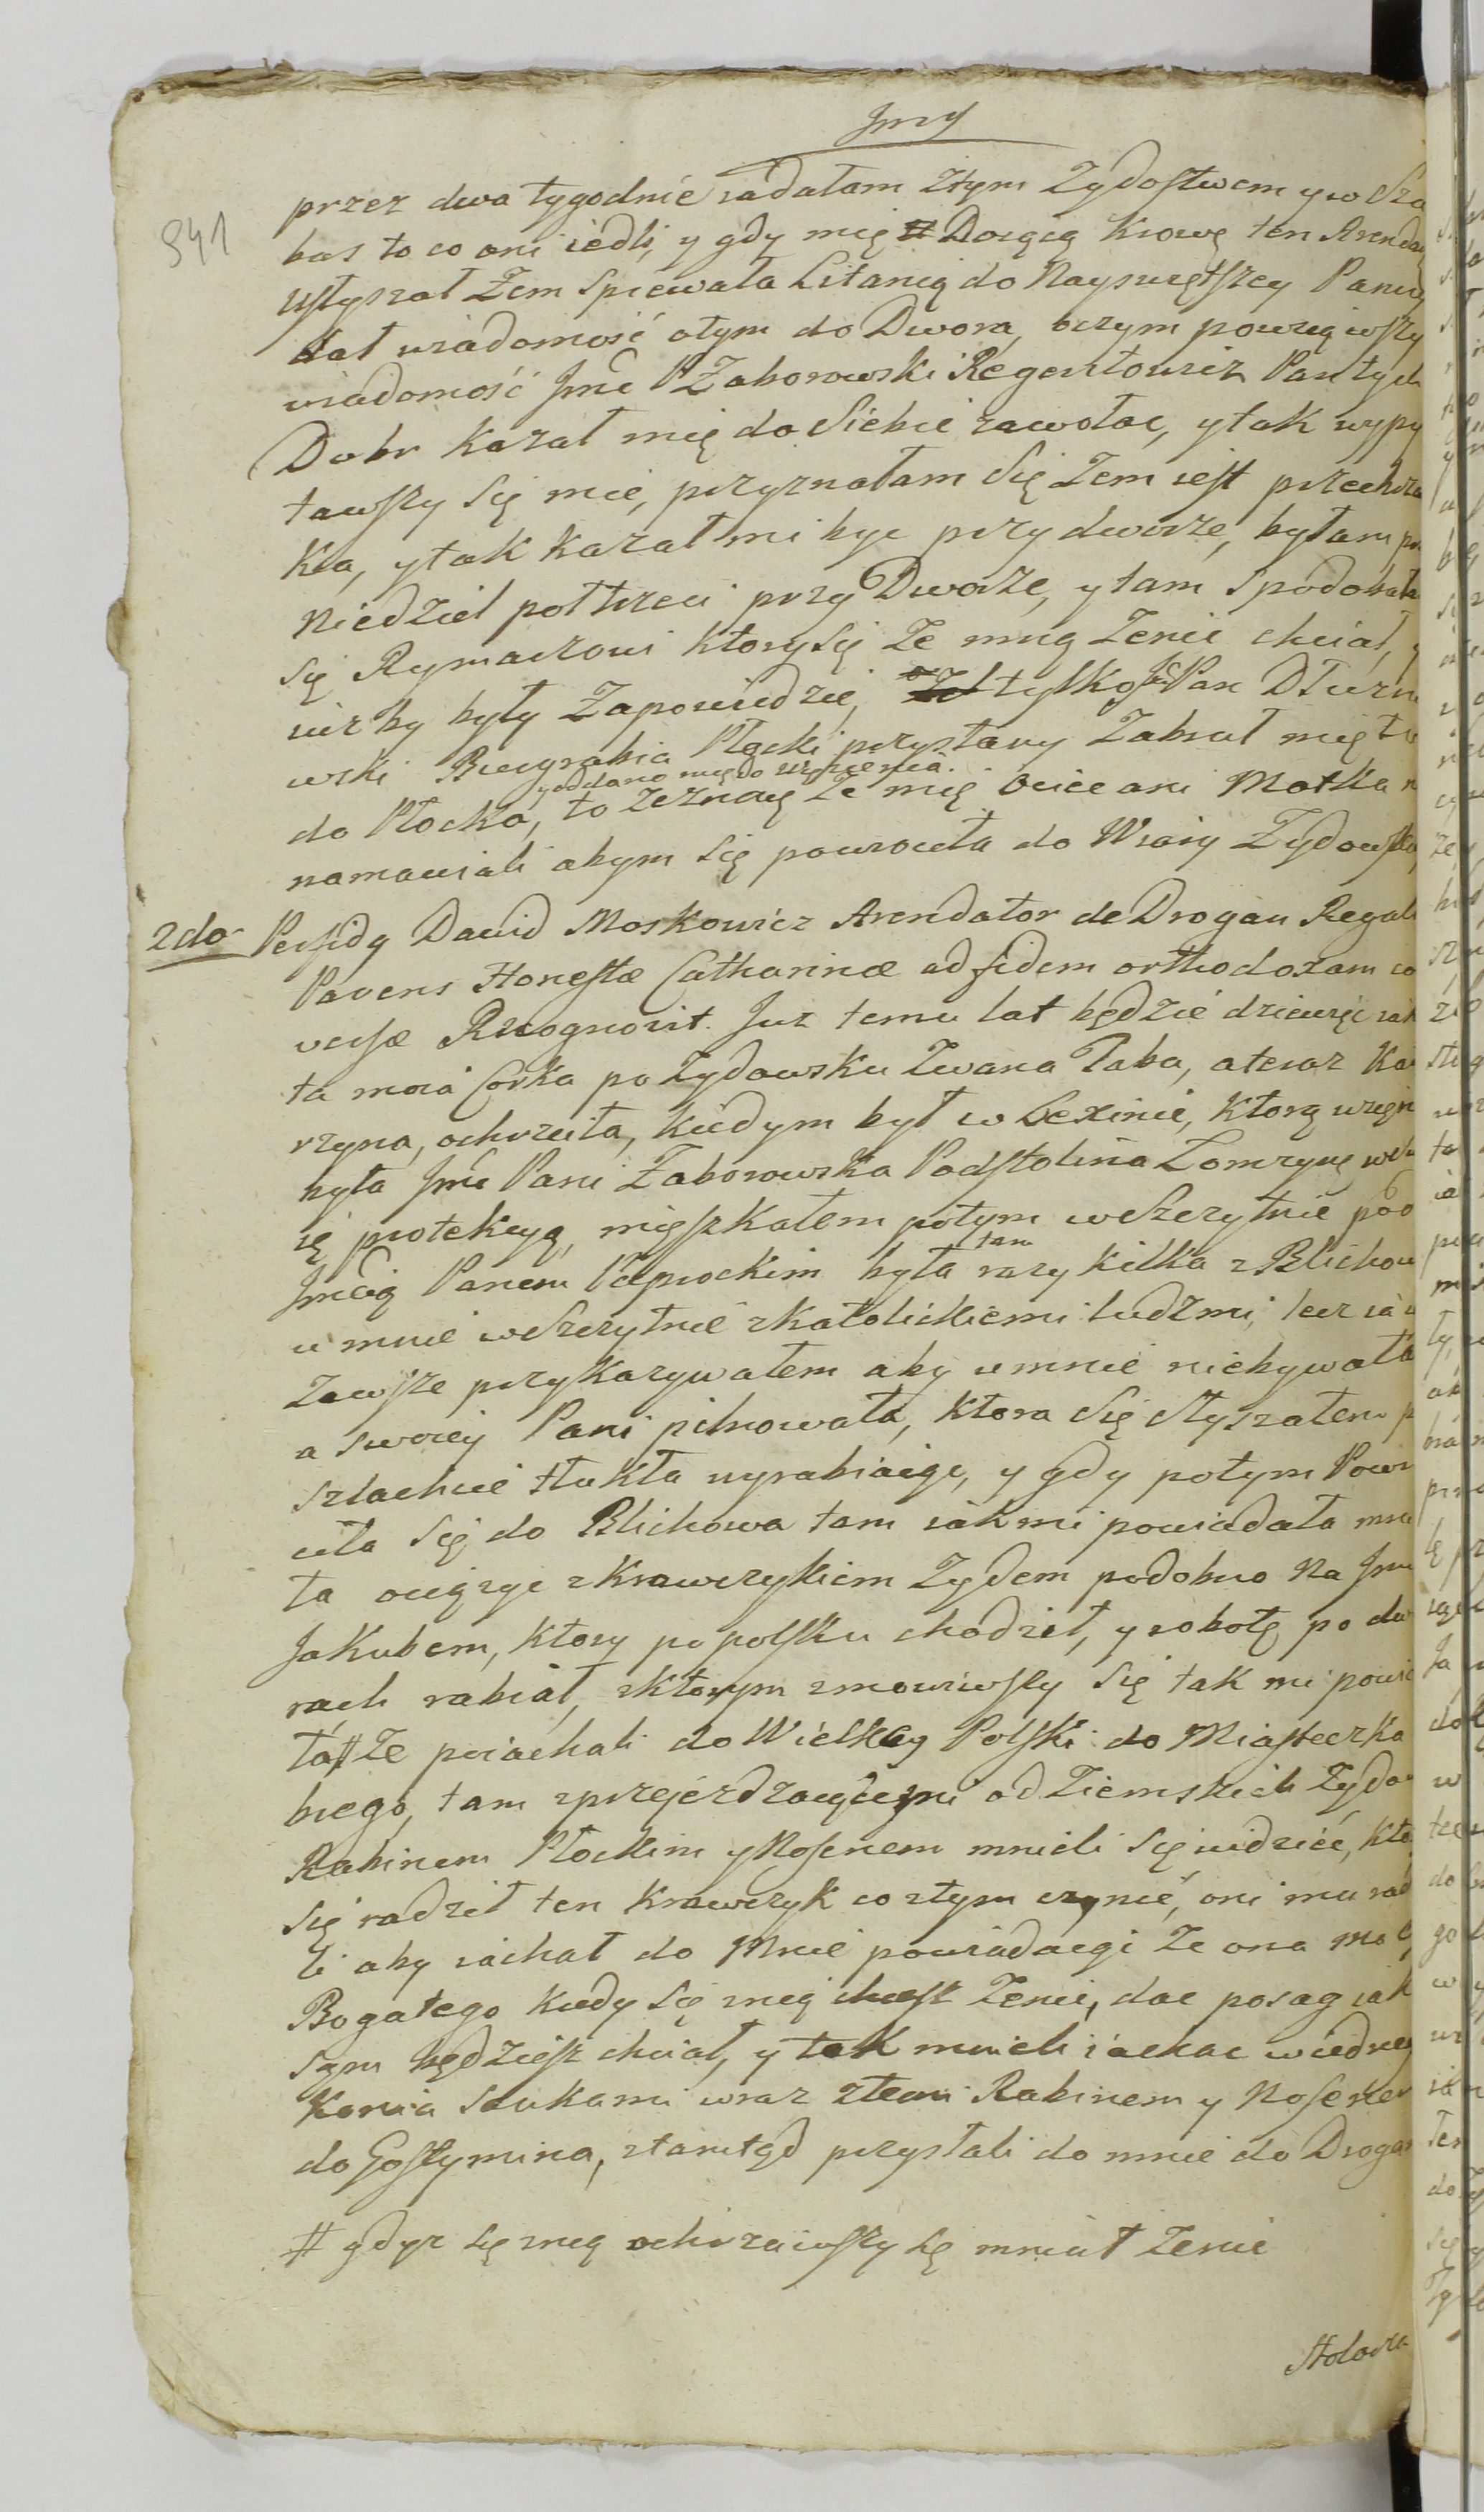 Jmy
541
przez dwa tygodnie iadałam z tym Zydostwem y w Sza
bas to co oni iedli, y gdy mię # Doiącą Krowę ten Arenda
usłyszał Zem Spiewała Litanią do Nayswiętszey Panny
dał wiadomość o tym do Dwora, o czym powziąwszy
wiadomość Jmć P Zaborowski Regentowicz Pan tych
Dobr Kazał mię do Siebie zawołac, y tak wypy
tawszy Się mie, przyznałam Się Zem iest przechrz
ka, y tak kazał mi byc przy dworze, byłam
Niedziel połtrzeci przy Dworze, y tam Spodobała
Się Rymarzowi ktory Się Ze mną Zenic chciał, y
iuz by były Zapowiedzie, tylko Jc Pan Dłuzni
wski Burgrabia Płocki przysłany Zabrał mię tu
y oddano mię do więzienia.
do Płocka, to Zeznaię Ze mię Ociec ani Matka n
namawiali abym Się powrociła do Wiary Zydowskiey
2do Perfidg Dawid Moskowicz Arendator de Drogan Regali
Parens Honestæ Catharinæ ad fidem orthodoxam co
versæ Recognovit. Juz temu lat będzie dziewięć iak
ta moia Corka po Zydowsku Zwana Taba, a teraz Ka
rzyna, ochrzciła, kiedym był w Lexinie, ktorą wzięła
była Jmć Pani Zaborowska Podstolina Łomzyńs w Sw
ię protekcyą, mięszkałem potym w Szczytnie pod
Jmcią Panem Paprockim była tam razy kilka z Blichow
u mnie w Szczytnie z Katolickiemi ludzmi, lecz ia
Zawsze przykazywałem aby u mnie niebywała
a swoiey Pani pilnowała, ktora Się Słyszałem p
szlachcie tłukła wyrabiaiąc, y gdy potym Powr
ciła Się do Blichowa tam iak mi powiadała mia
ta z Krawczykiem Zydem podobno Na Jmie
Jakubem, ktory po polsku chodził, y robotę po dwo
rach rabiał, z ktorym zmowiwszy Się tak mi powia
ła # Ze poiachali do Wielkiey Polski do Miasteczka
biego, tam z przeiezdzaiącymi od Ziemskich Zydow
Rabinem Płockim y Nosenem mieli Się widzieć, kto
się radził ten Krawczyk co z tym czynić, oni mu radzi
li aby iachał do Mnie powiadaiąc Ze ona ma Oy
Bogatego kiedy Się znią chcesz Zenic, dac posag iak
sam będziesz chciał, y tak mieli iachac w iednego
Konia Szukami wraz z temi Rabinem y Nosenem
do Gostymina, ztamtąd przysłali do mnie do Drogan
# gdyz Się znią ochrzciwszy Się miał Zenic